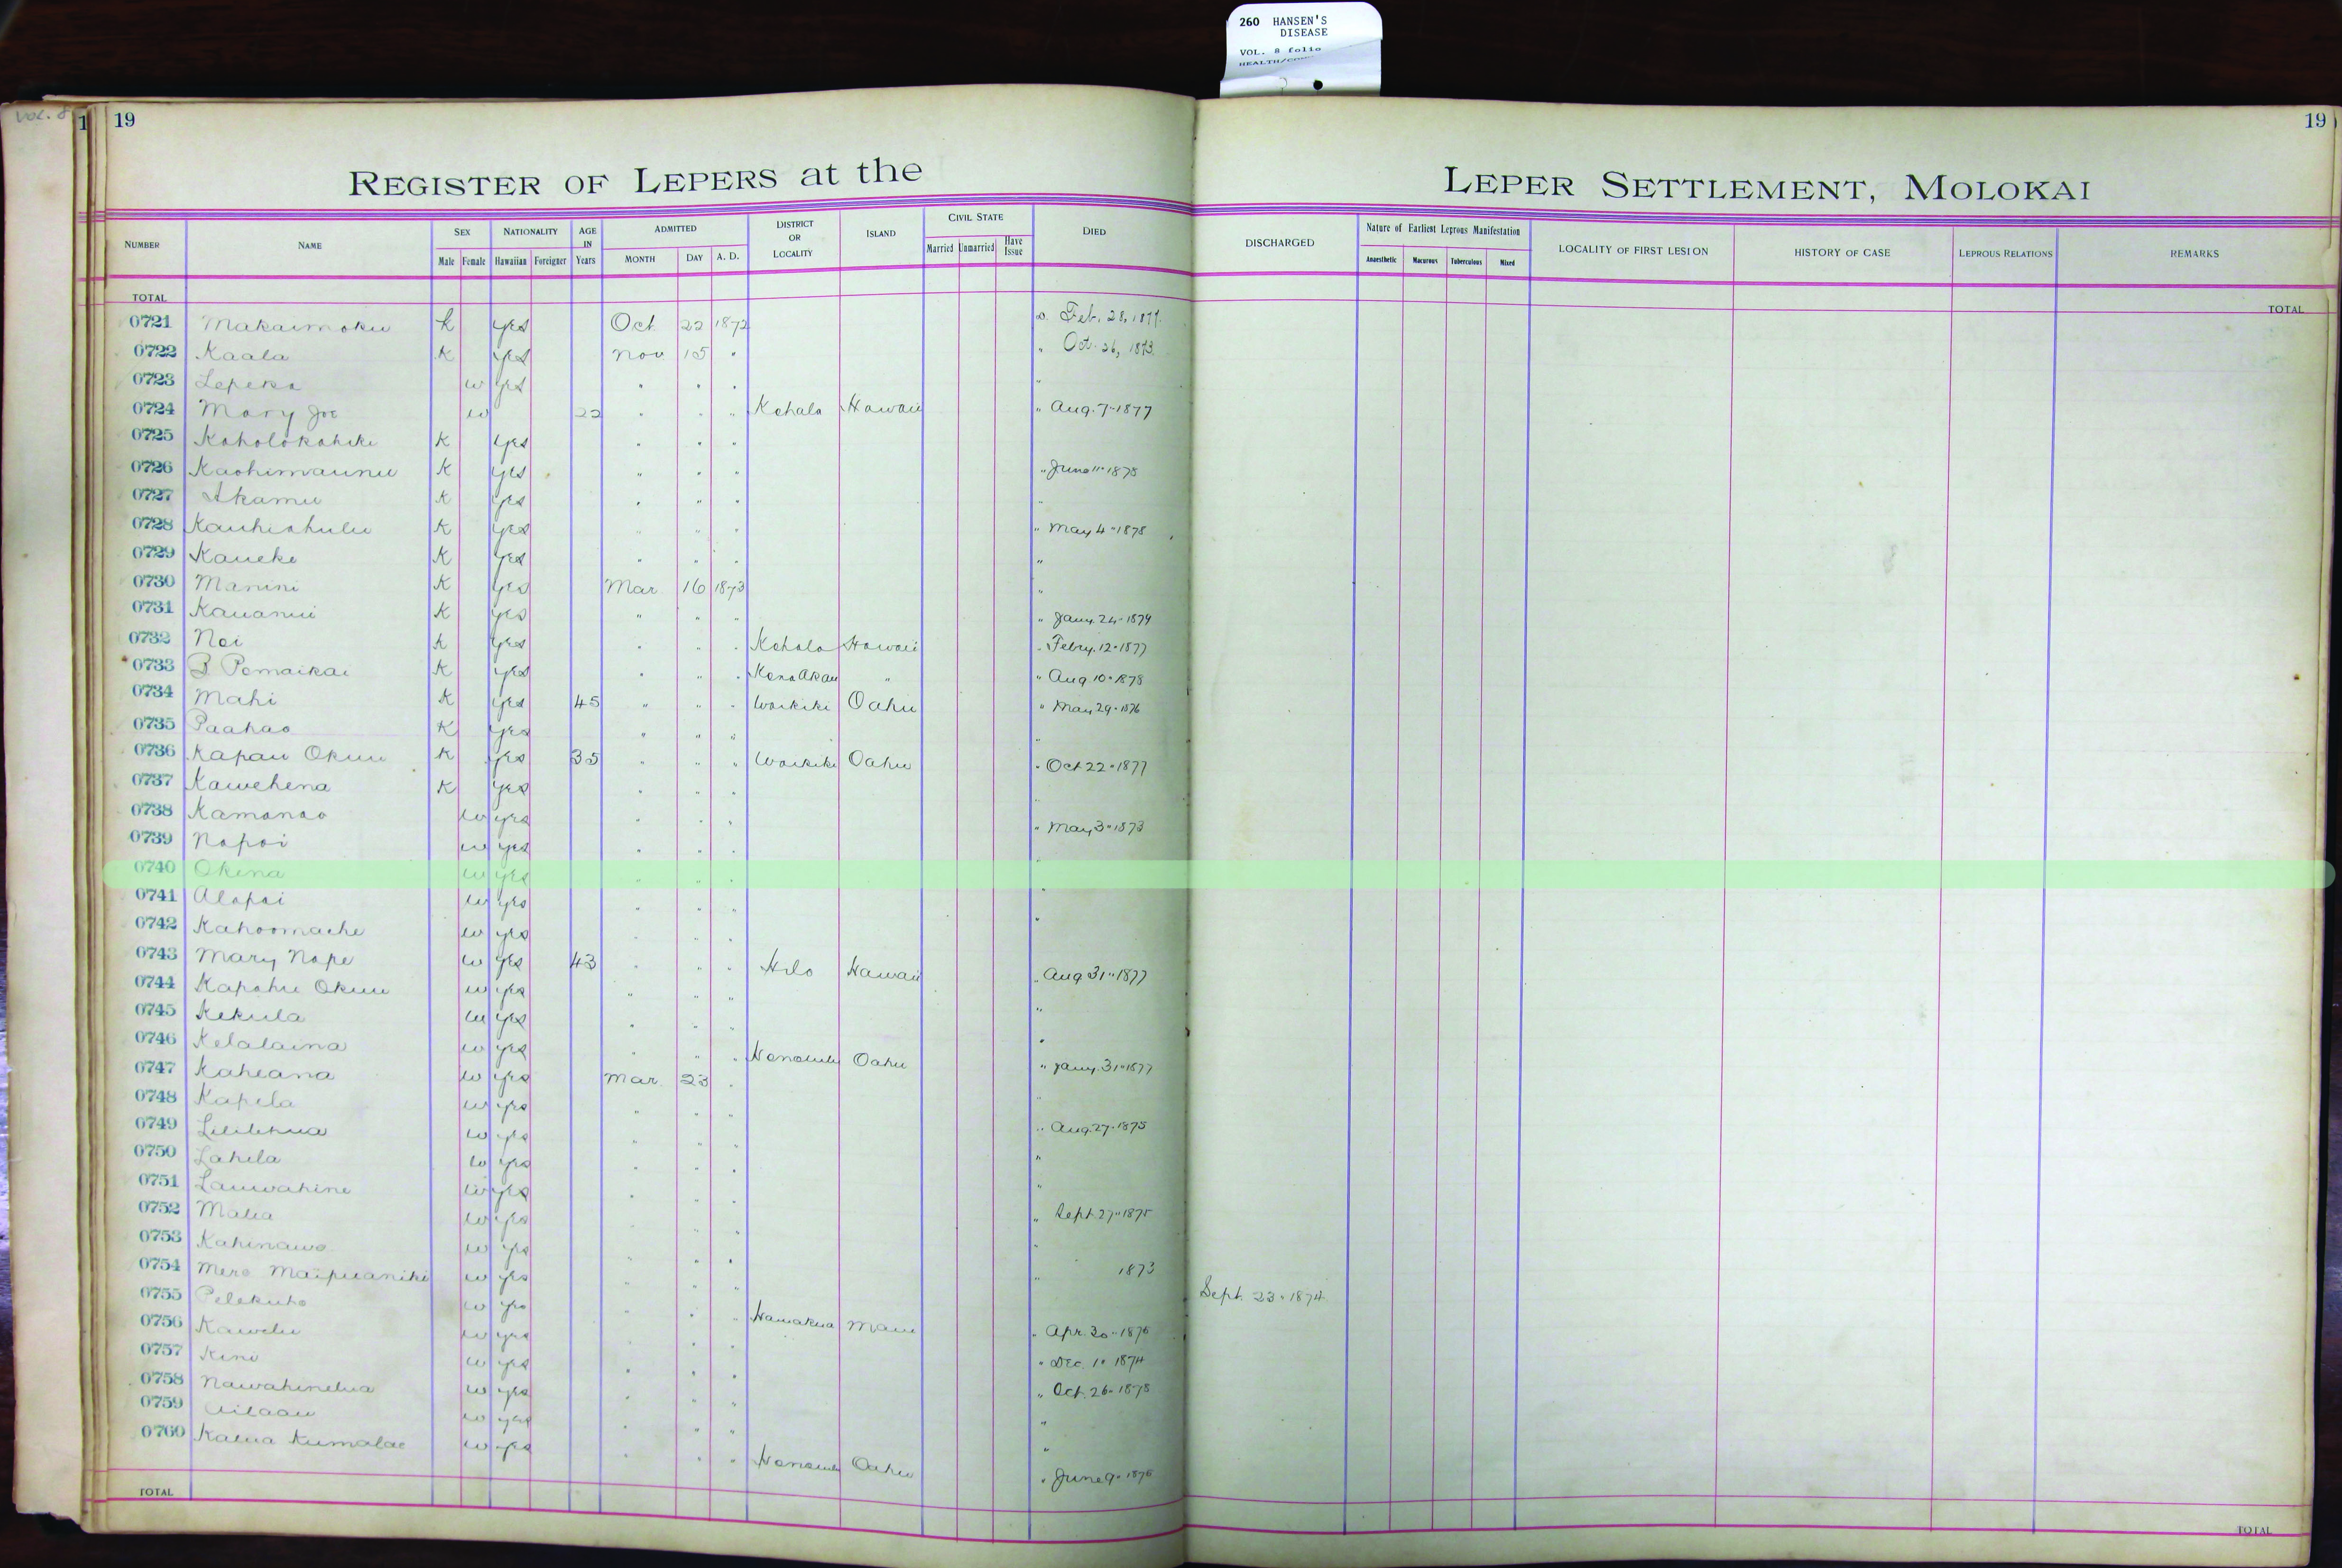 260 HANSEN'S
DISEASE
VOL. 8 folio
Vol. 8
1 19 19
REGISTER OF LEPERS at the LEPER SETTLEMENT, MOLOKAI
NUMBER NAME SEX NATIONALITY AGE IN Years ADMITTED DISTRICT OR LOCALITY ISLAND CIVIL STATE DIED DISCHARGED Nature of Earliest Leprous Manifestation LOCALITY OF FIRST LESION HISTORY OF CASE LEPROUS RELATIONS REMARKS
Male Female Hawaiian Foreigner MONTH DAY A. D. Married Unmarried Have Issue Anaesthetic Macurous Tuberculous Mixed
TOTAL TOTAL
0721 Makaimoku K yes Oct 22 1872 d. Feb. 28, 1877.
0722 Kaala K yes Nov 15 " " Oct. 26, 1873.
0723 Lepeka w yes " " " "
0724 Mary Joe w 22 " " " Kohala Hawaii " Aug. 7-1877
0725 Koholokahiki K yes " " "
0726 Kaohimaunu K yes " " " " June 11-1878
0727 Akamu K yes " " " "
0728 Kauhiahulu K yes " " " " May 4-1878
0729 Kaueke K yes " " " "
0730 Manini K yes Mar 16 1873 "
0731 Kauanui K yes " " " " Jany. 24-1879
0732 Noi K yes " " " Kohala Hawaii " Febry. 12-1877
0733 B Pomaikai K yes " " " Kona Akau " " Aug 10-1878
0734 Mahi K yes 45 " " " Waikiki Oahu " May 29-1876
0735 Paahao K yes " " " "
0736 Kapau Okuu K yes 35 " " " Waikiki Oahu " Oct 22-1877
0737 Kawehena K yes " " " "
0738 Kamanao w yes " " " " May 3-1873
0739 Napoi w yes " " " "
0740 Okina w yes " " " "
0741 Alapai w yes " " " "
0742 Kahoomache w yes " " "
0743 Mary Nape w yes 43 " " " Hilo Hawaii " Aug 31-1877
0744 Kapahu Okuu w yes " " " "
0745 Kekula w yes " " " "
0746 Kelalaina w yes " " " Honolulu Oahu " Jany. 31-1877
0747 Kaheana w yes Mar. 23 " "
0748 Kapela w yes " " "
0749 Liilihua w yes " " " " Aug. 27-1875
0750 Lahela w yes " " " "
0751 Lauwahine w yes " " "
0752 Malia w yes " " " " Sept. 27-1875
0753 Kahinawe w yes " " " "
0754 Mere Maipuaniki w yes " " " " 1873
0755 Pelekuho w yes " " " Sept. 23-1874
0756 Kawelu w yes " " " Hamakua Maui " Apr. 30-1876
0757 Kini w yes " " " " Dec. 1-1874
0758 Nawahinelua w yes " " " " Oct. 26-1878
0759 Ailaau w yes " " " "
0760 Kalua Kumalae w yes " " " Honolulu Oahu " June 9-1876
TOTAL TOTAL